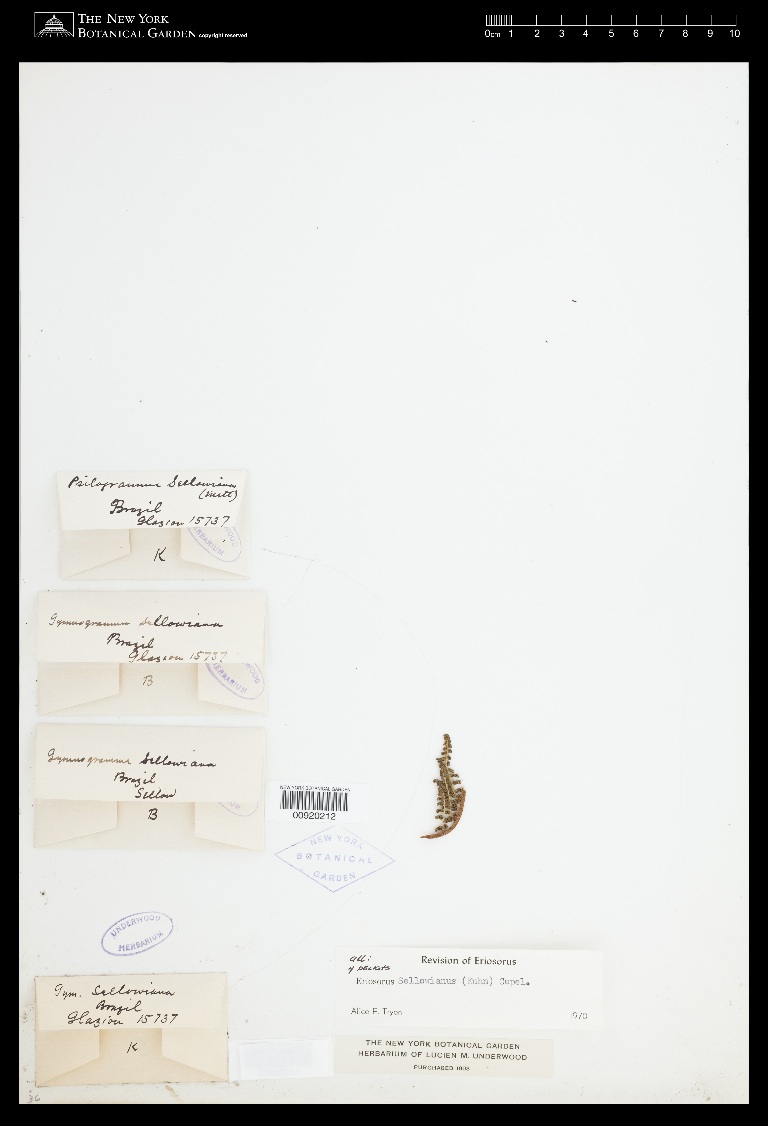 THE NEW YORK
BOTANICAL GARDEN copyright reserved
0cm 1 2 3 4 5 6 7 8 9 10
Psilogramme Sellowiana
(Mett)
Brazil
Glaziou 15737
HERBARIUM
K
Gymnogramme Sellowiana
Brazil
Glaziou 15737
HERBARIUM
B
Gymnogramme Sellowiana
Brazil
Sellow
B
NEW YORK BOTANICAL GARDEN
00920212
NEW YORK
BOTANICAL
GARDEN
UNDERWOOD
HERBARIUM
Gym. Sellowiana
Brazil
Glaziou 15737
K
all:
Revision of Eriosorus
Eriosorus Sellowianus (Kuhn) Copel.
Alice F. Tryon
1970
THE NEW YORK BOTANICAL GARDEN
HERBARIUM OF LUCIEN M. UNDERWOOD
PURCHASED 1908
36